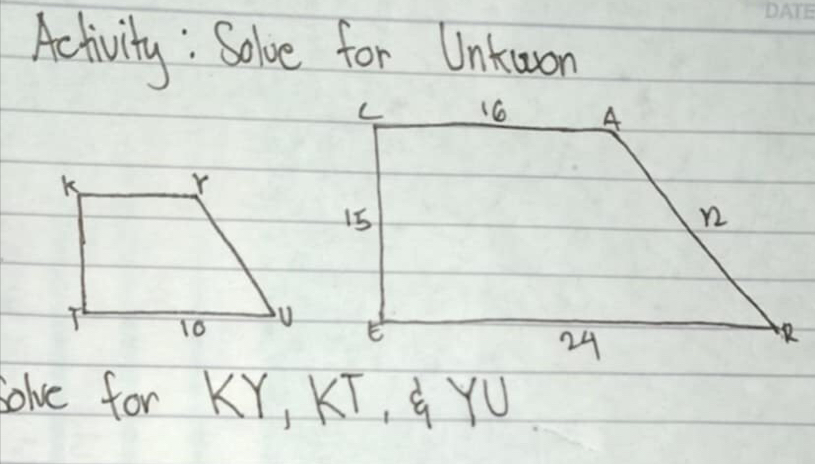 DATE
Activity: Solve for Unkwon
L 16 A
K Y
15 n
T 10 U E 24 R
Solve for KY, KT, & YU